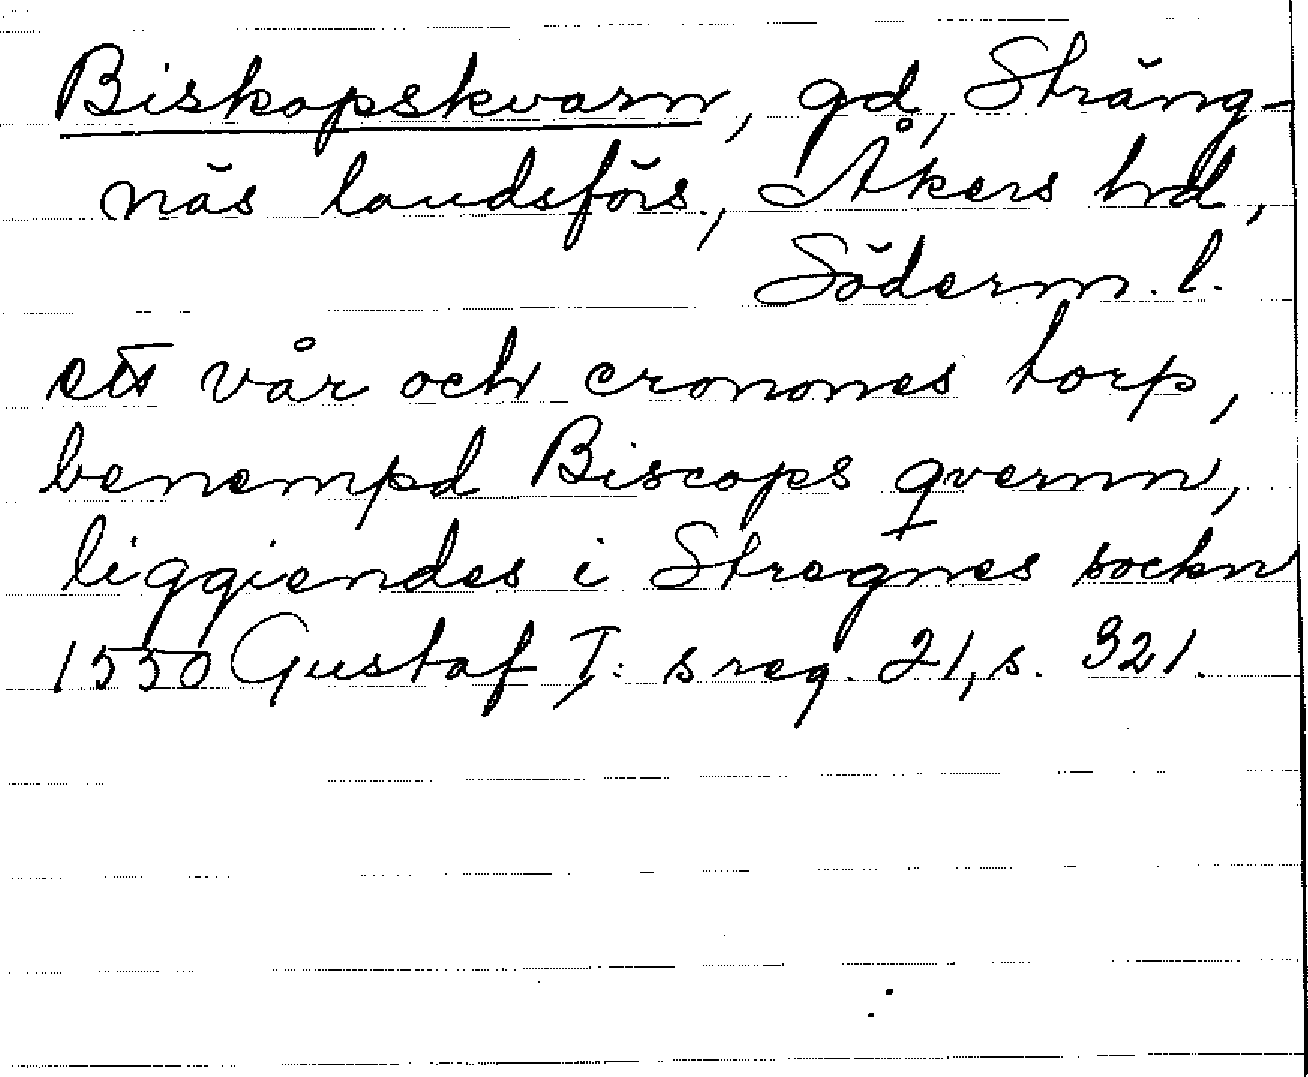 Biskopskvarn, gd, Sträng-
näs landsförs., Åkers hrd,
Söderm. l.
ett vår och cronones torp,
benempd Biscops qvernn,
liggiendes i Stregnes sockn
1550 Gustaf I: s reg. 21, s. 321.